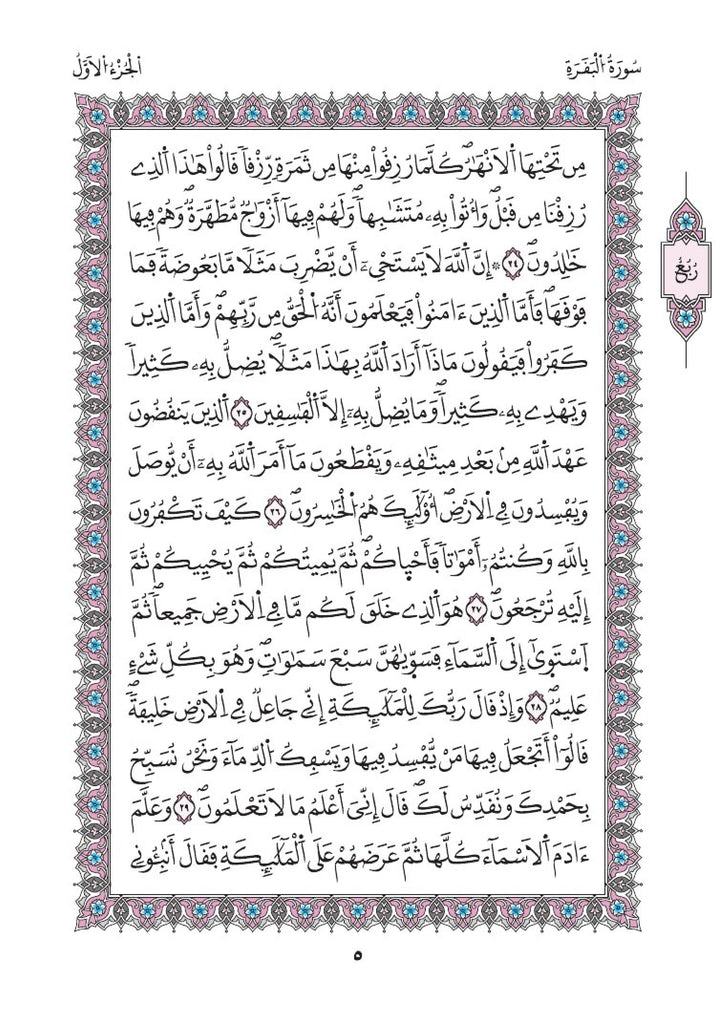 سُورَةُ اُ۬لْبَقَرَةِ
اَ۬لْجُزْءُ اُ۬لَاوَّلُ
مِن تَحْتِهَا اَ۬لَانْهَٰرُۖ كُلَّمَا رُزِقُواْ مِنْهَا مِن ثَمَرَةٖ رِّزْقاٗ قَالُواْ هَٰذَا اَ۬لذِے
رُزِقْنَا مِن قَبْلُۖ وَأُتُواْ بِهِۦ مُتَشَٰبِهاٗۖ وَلَهُمْ فِيهَآ أَزْوَٰجٞ مُّطَهَّرَةٞۖ وَهُمْ فِيهَا
خَٰلِدُونَۖ ٢٤ ۞ إِنَّ اَ۬للَّهَ لَا يَسْتَحْيِۦٓ أَنْ يَّضْرِبَ مَثَلاٗ مَّا بَعُوضَةٗ فَمَا
فَوْقَهَاۖ فَأَمَّا اَ۬لذِينَ ءَامَنُواْ فَيَعْلَمُونَ أَنَّهُ اُ۬لْحَقُّ مِن رَّبِّهِمْۖ وَأَمَّا اَ۬لذِينَ
كَفَرُواْ فَيَقُولُونَ مَاذَآ أَرَادَ اَ۬للَّهُ بِهَٰذَا مَثَلاٗۖ يُضِلُّ بِهِۦ كَثِيراٗ
وَيَهْدِے بِهِۦ كَثِيراٗۖ وَمَا يُضِلُّ بِهِۦٓ إِلَّا اَ۬لْفَٰسِقِينَ ٢٥ اَ۬لذِينَ يَنقُضُونَ
عَهْدَ اَ۬للَّهِ مِنۢ بَعْدِ مِيثَٰقِهِۦ وَيَقْطَعُونَ مَآ أَمَرَ اَ۬للَّهُ بِهِۦٓ أَنْ يُّوصَلَ
وَيُفْسِدُونَ فِے اِ۬لَارْضِۖ أُوْلَٰٓئِكَ هُمُ اُ۬لْخَٰسِرُونَۖ ٢٦ كَيْفَ تَكْفُرُونَ
بِاللَّهِ وَكُنتُمُۥٓ أَمْوَٰتاٗ فَأَحْيَٰكُمْۖ ثُمَّ يُمِيتُكُمْ ثُمَّ يُحْيِيكُمْ ثُمَّ
إِلَيْهِ تُرْجَعُونَۖ ٢٧ هُوَ اَ۬لذِے خَلَقَ لَكُم مَّا فِے اِ۬لَارْضِ جَمِيعاٗۖ ثُمَّ
اَ۪سْتَوَىٰٓ إِلَى اَ۬لسَّمَآءِ فَسَوَّيٰهُنَّ سَبْعَ سَمَٰوَٰتٖۖ وَهُوَ بِكُلِّ شَےْءٍ
عَلِيمٞۖ ٢٨ وَإِذْ قَالَ رَبُّكَ لِلْمَلَٰٓئِكَةِ إِنِّے جَاعِلٞ فِے اِ۬لَارْضِ خَلِيفَةٗۖ
قَالُوٓاْ أَتَجْعَلُ فِيهَا مَنْ يُّفْسِدُ فِيهَا وَيَسْفِكُ اُ۬لدِّمَآءَ وَنَحْنُ نُسَبِّحُ
بِحَمْدِكَ وَنُقَدِّسُ لَكَۖ قَالَ إِنِّيَ أَعْلَمُ مَا لَا تَعْلَمُونَۖ ٢٩ وَعَلَّمَ
ءَادَمَ اَ۬لَاسْمَآءَ كُلَّهَا ثُمَّ عَرَضَهُمْ عَلَى اَ۬لْمَلَٰٓئِكَةِ فَقَالَ أَنۢبِـُٔونِے
رُبُعُ
٥